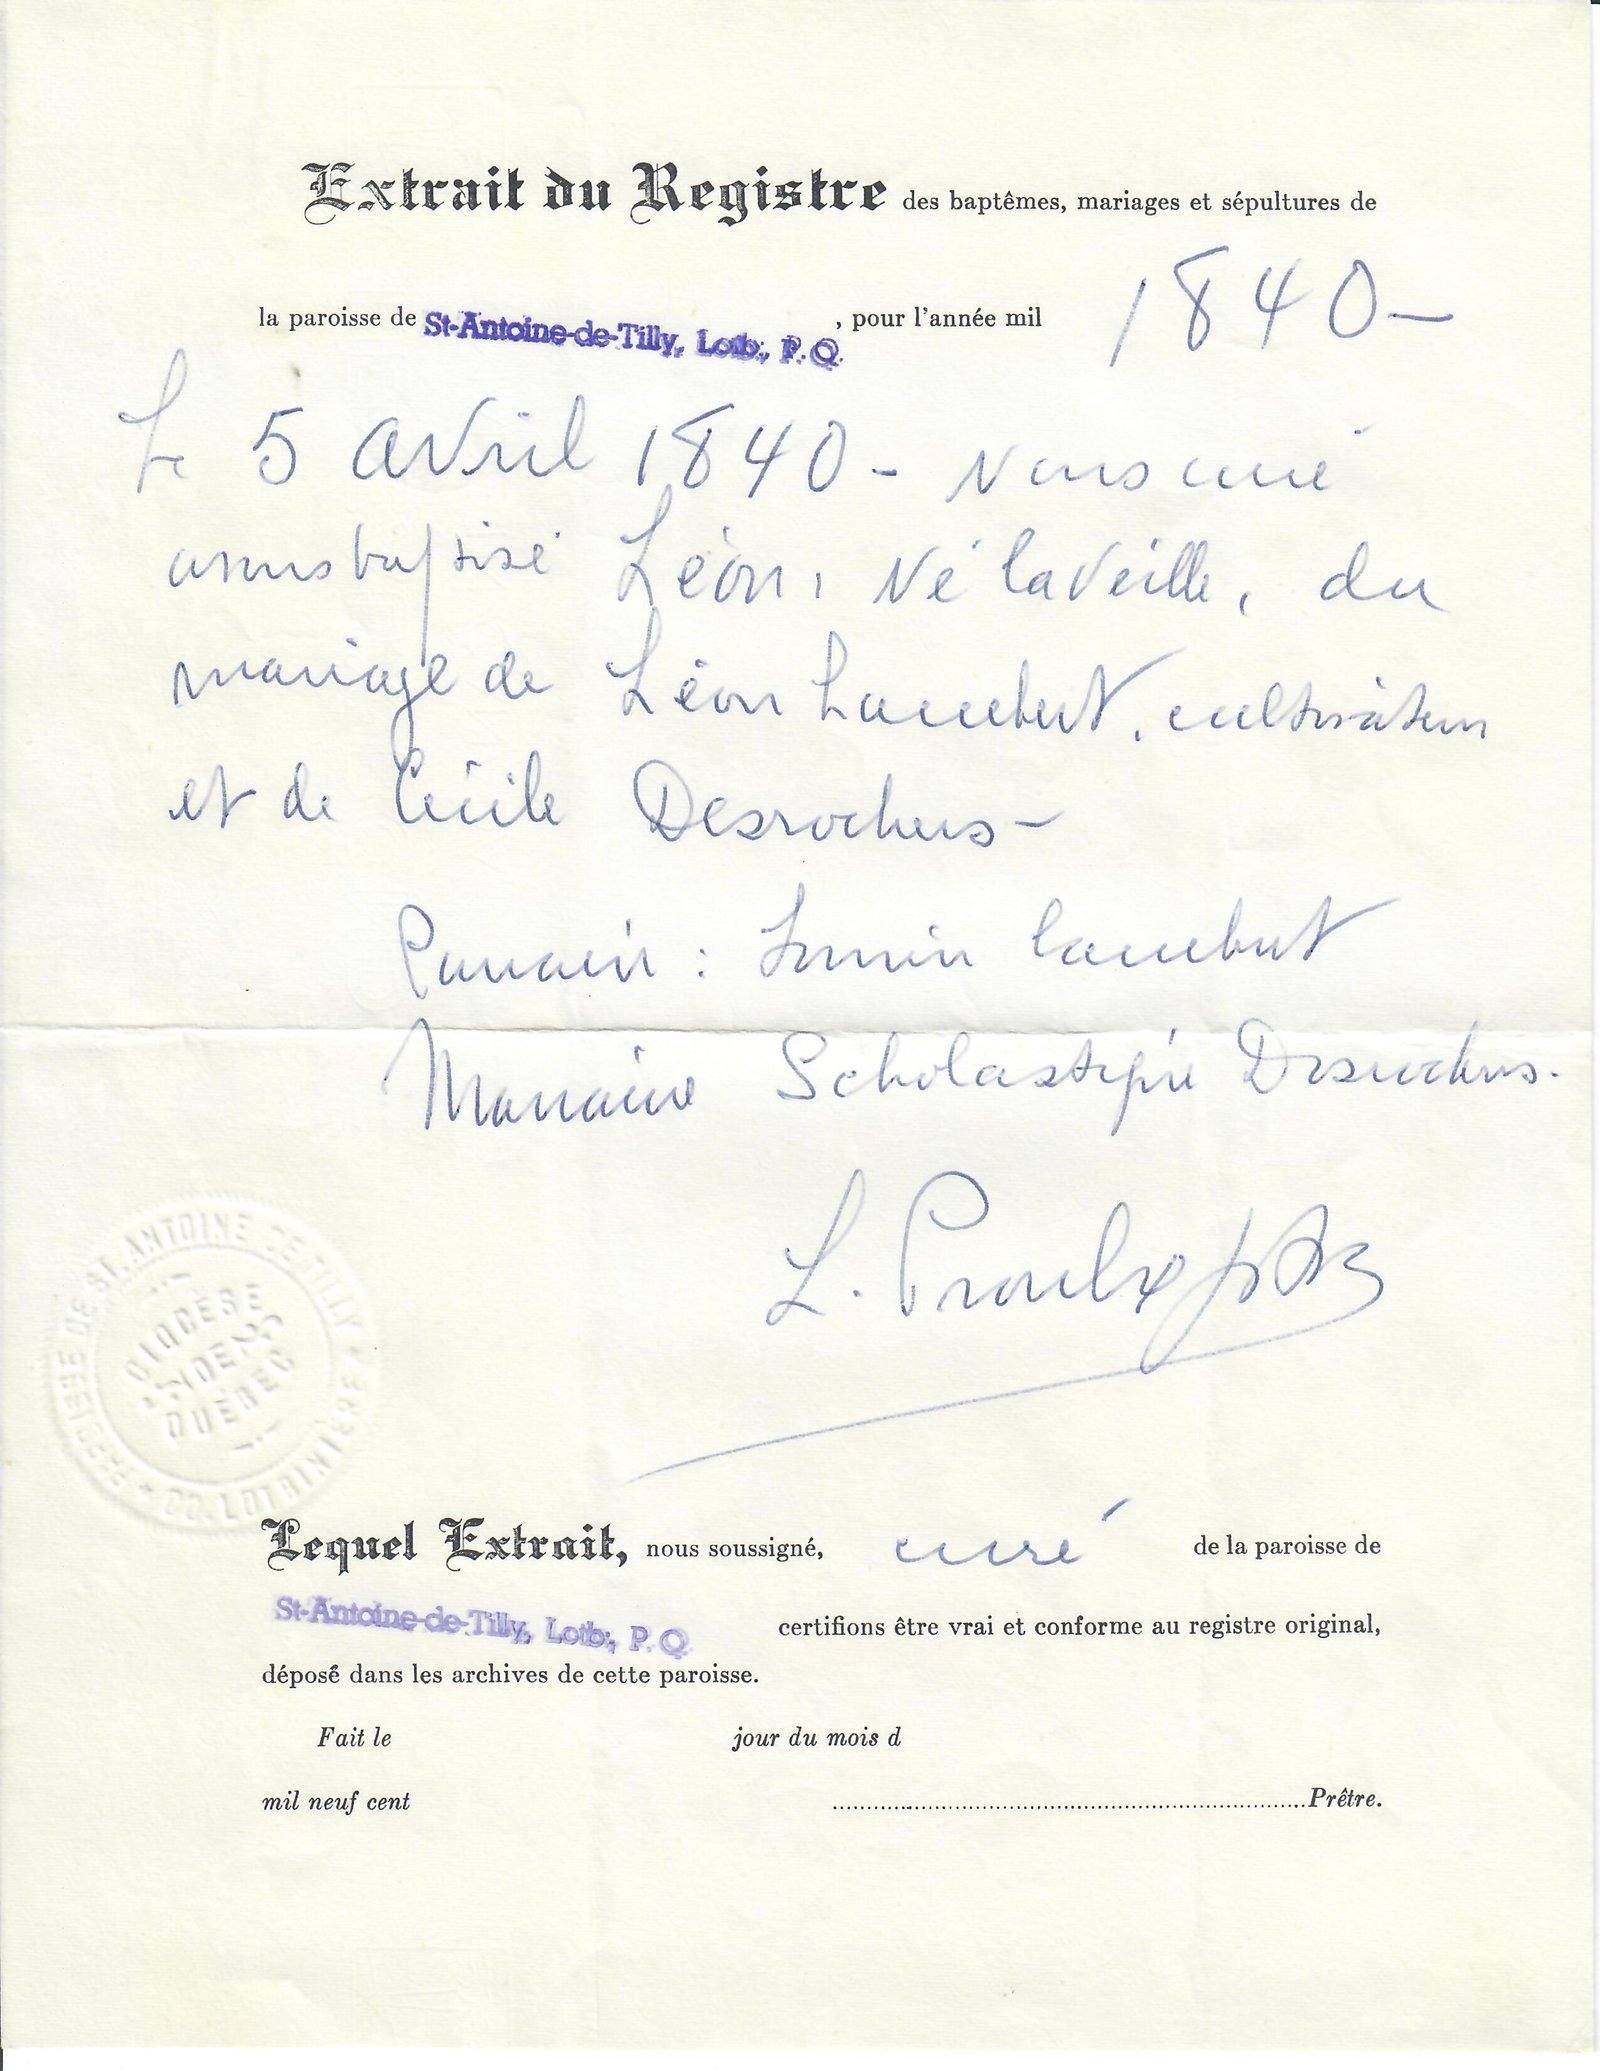 Extrait du Registre des baptêmes, mariages et sépultures de
la paroisse de St-Antoine-de-Tilly, Lotb., P. Q. , pour l'année mil 1840 -
Le 5 avril 1840 - nous curé
avons baptisé Léon, né la veille, du
mariage de Léon Lambert, cultivateur
et de Cécile Desrochers -
Parrain : Lambert
Marraine Scholastique Desrochers.
L. Proulx ptre
PAROISSE DE ST. ANTOINE DE TILLY * CO. LOTBINIÈRE *
DIOCÈSE
DE
QUÉBEC
Lequel Extrait, nous soussigné, curé de la paroisse de
St-Antoine-de-Tilly, Lotb., P. Q. certifions être vrai et conforme au registre original,
déposé dans les archives de cette paroisse.
Fait le jour du mois d
mil neuf cent ........ Prêtre.